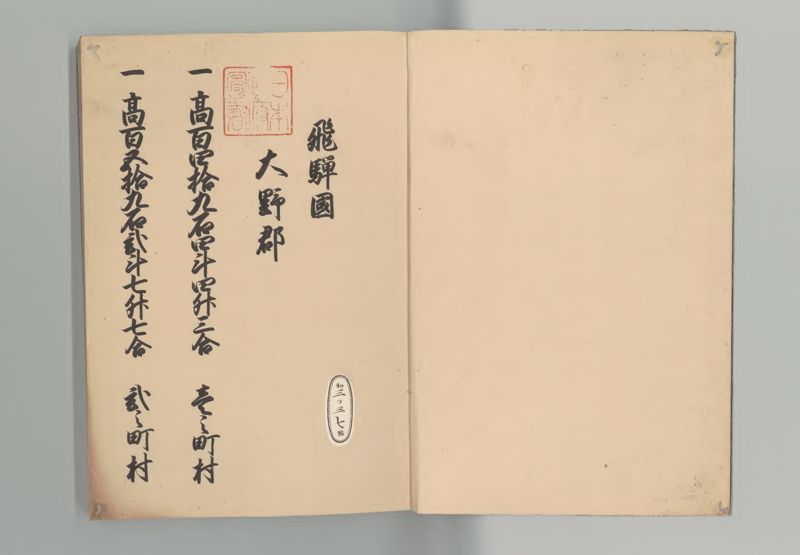 飛騨國
大野郡
一 高百四拾九石四斗四升二合 壱之町村
一 高百五拾九石貳斗七升七合 貳之町村
和三〇三七號